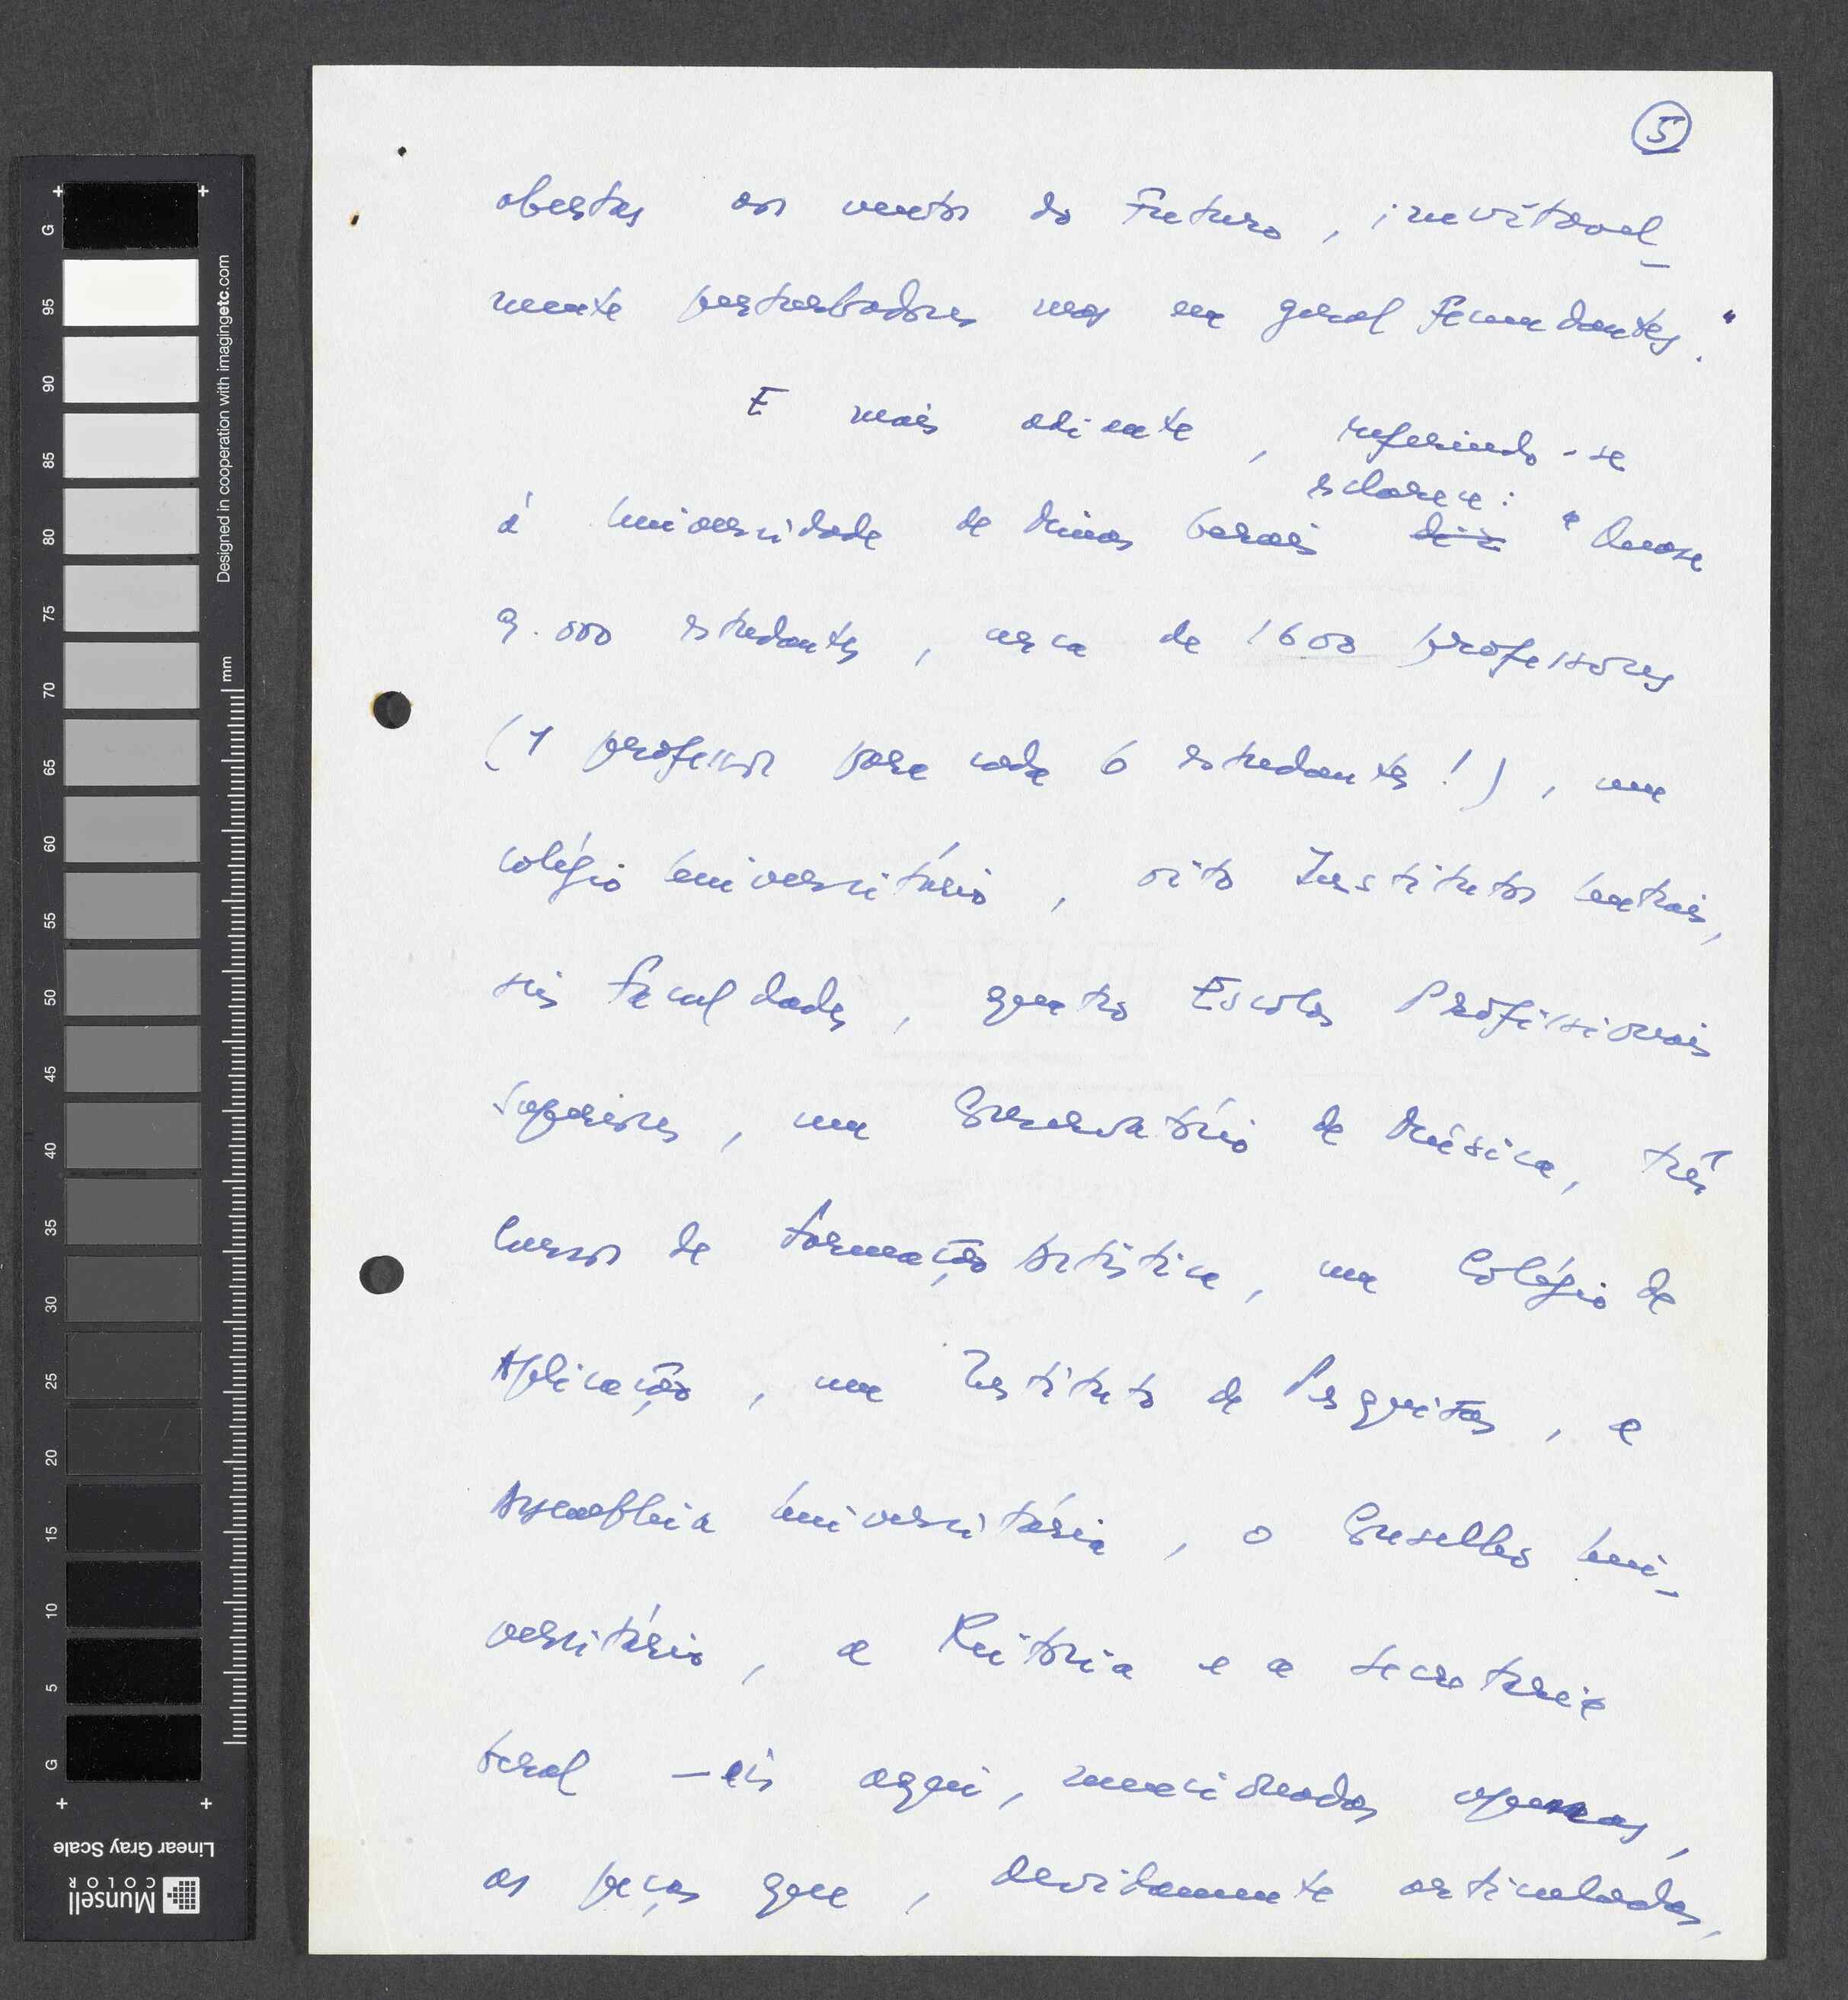 5
abertas aos ventos do Futuro, inevitavel-
mente perturbadores mas em geral Fecundantes."
E mais adiante, referindo-se
esclarece:
à Universidade de Minas Gerais diz "Quase
9.000 estudantes, cerca de 1600 professores
(1 professor para cada 6 estudantes!), um
colégio Universitário, oito Institutos Centrais,
seis Faculdades, quatro Escolas Profissionais
Superiores, um Conservatório de Música, três
Cursos de Formação Artística, um Colégio de
Aplicação, um Instituto de Pesquisas, a
Assembleia Universitária, o Conselho Uni-
versitário, a Reitoria e a Secretaria
Geral — eis aqui, mencionadas apenas,
as peças que, devidamente articuladas,
G
95
90
85
80
75
70
65
60
55
50
45
40
35
30
25
20
15
10
5
G
Designed in cooperation with imagingetc.com
mm
Linear Gray Scale
Munsell
COLOR